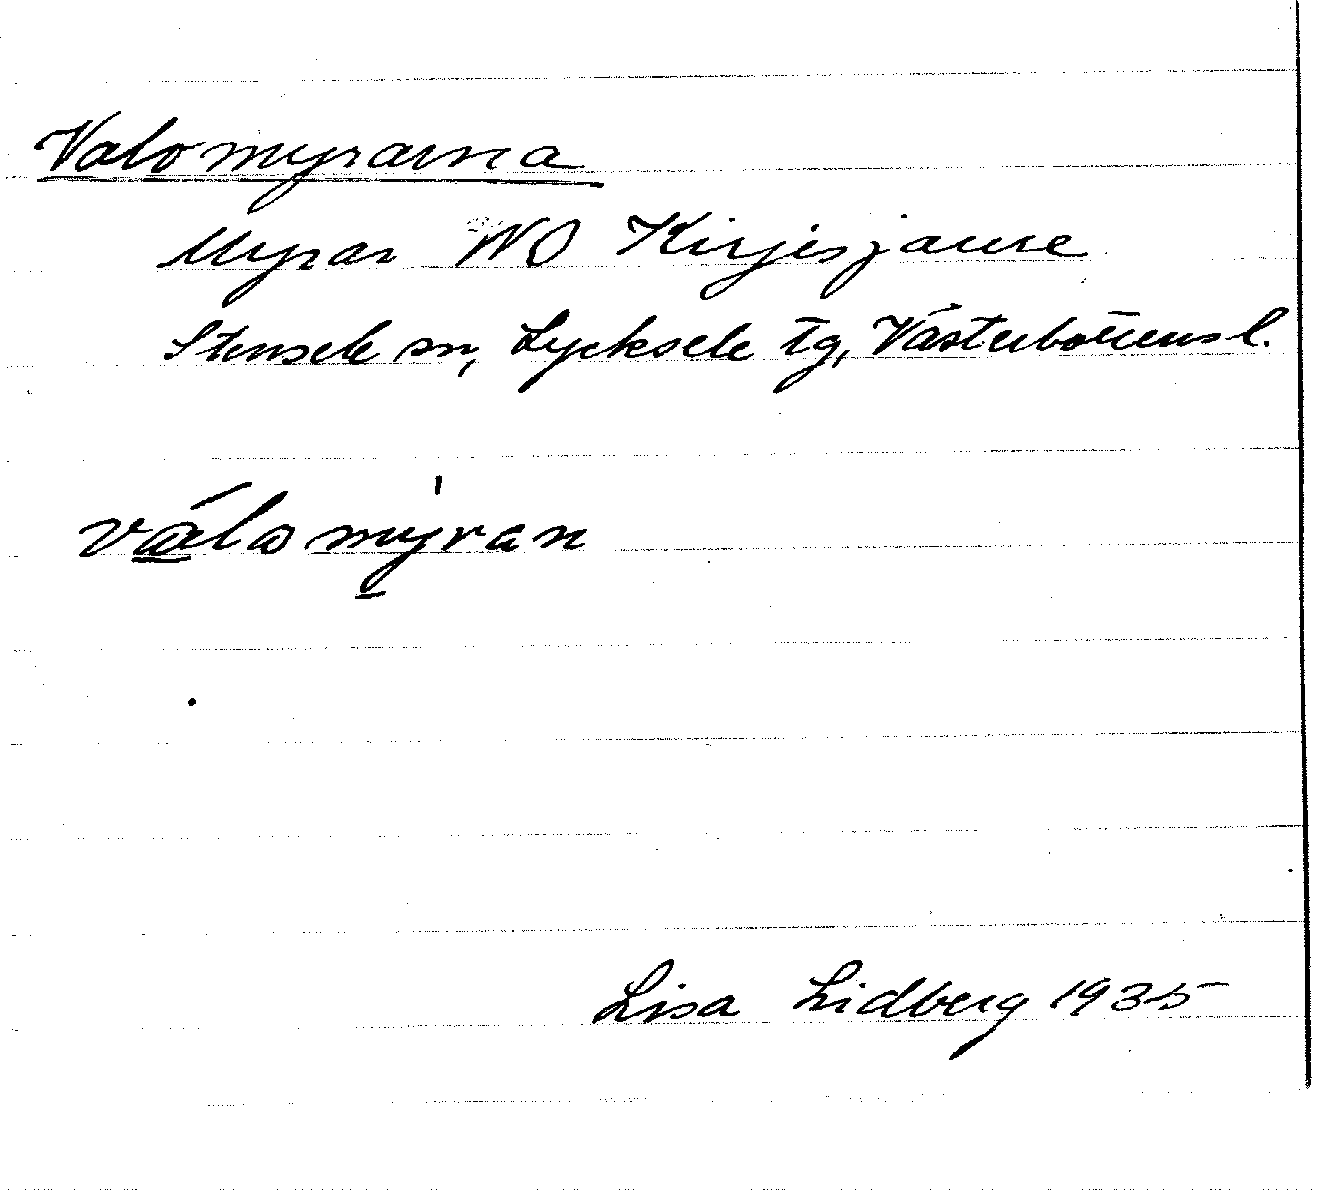 Valomyrarna
Myrar NO Kirjesjaure
Stensele sn, Lycksele tg, Västerbottens l.
válomýran
Lisa Lidberg 1935